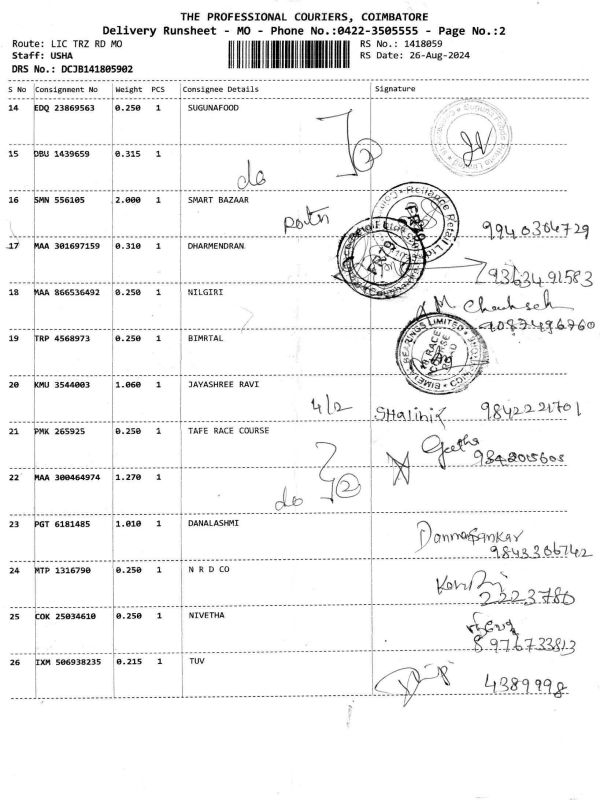 THE PROFESSIONAL COURIERS, COIMBATORE
Delivery Runsheet - MO - Phone No.:0422-3505555 - Page No.:2
Route: LIC TRZ RD MO RS No.: 1418059
Staff: USHA RS Date: 26-Aug-2024
DRS No.: DCJB141805902
S No Consignment No Weight PCS Consignee Details Signature
14 EDQ 23869563 0.250 1 SUGUNAFOOD
15 DBU 1439659 0.315 1 do
16 SMN 556105 2.000 1 SMART BAZAAR 9940304729
Reliance Retail Ltd
17 MAA 301697159 0.310 1 DHARMENDRAN 9363491583
18 MAA 866536492 0.250 1 NILGIRI 9087496760
19 TRP 4568973 0.250 1 BIMRTAL
BEARINGS LIMITED
RACE
20 KMU 3544003 1.060 1 JAYASHREE RAVI 4/2 SHalini 9842221701
21 PMK 265925 0.250 1 TAFE RACE COURSE Geetha
22 MAA 300464974 1.270 1 do 2
23 PGT 6181485 1.010 1 DANALASHMI 9843306742
24 MTP 1316790 0.250 1 N R D CO 2223780
25 COK 25034610 0.250 1 NIVETHA 8976733813
26 IXM 506938235 0.215 1 TUV 4389998